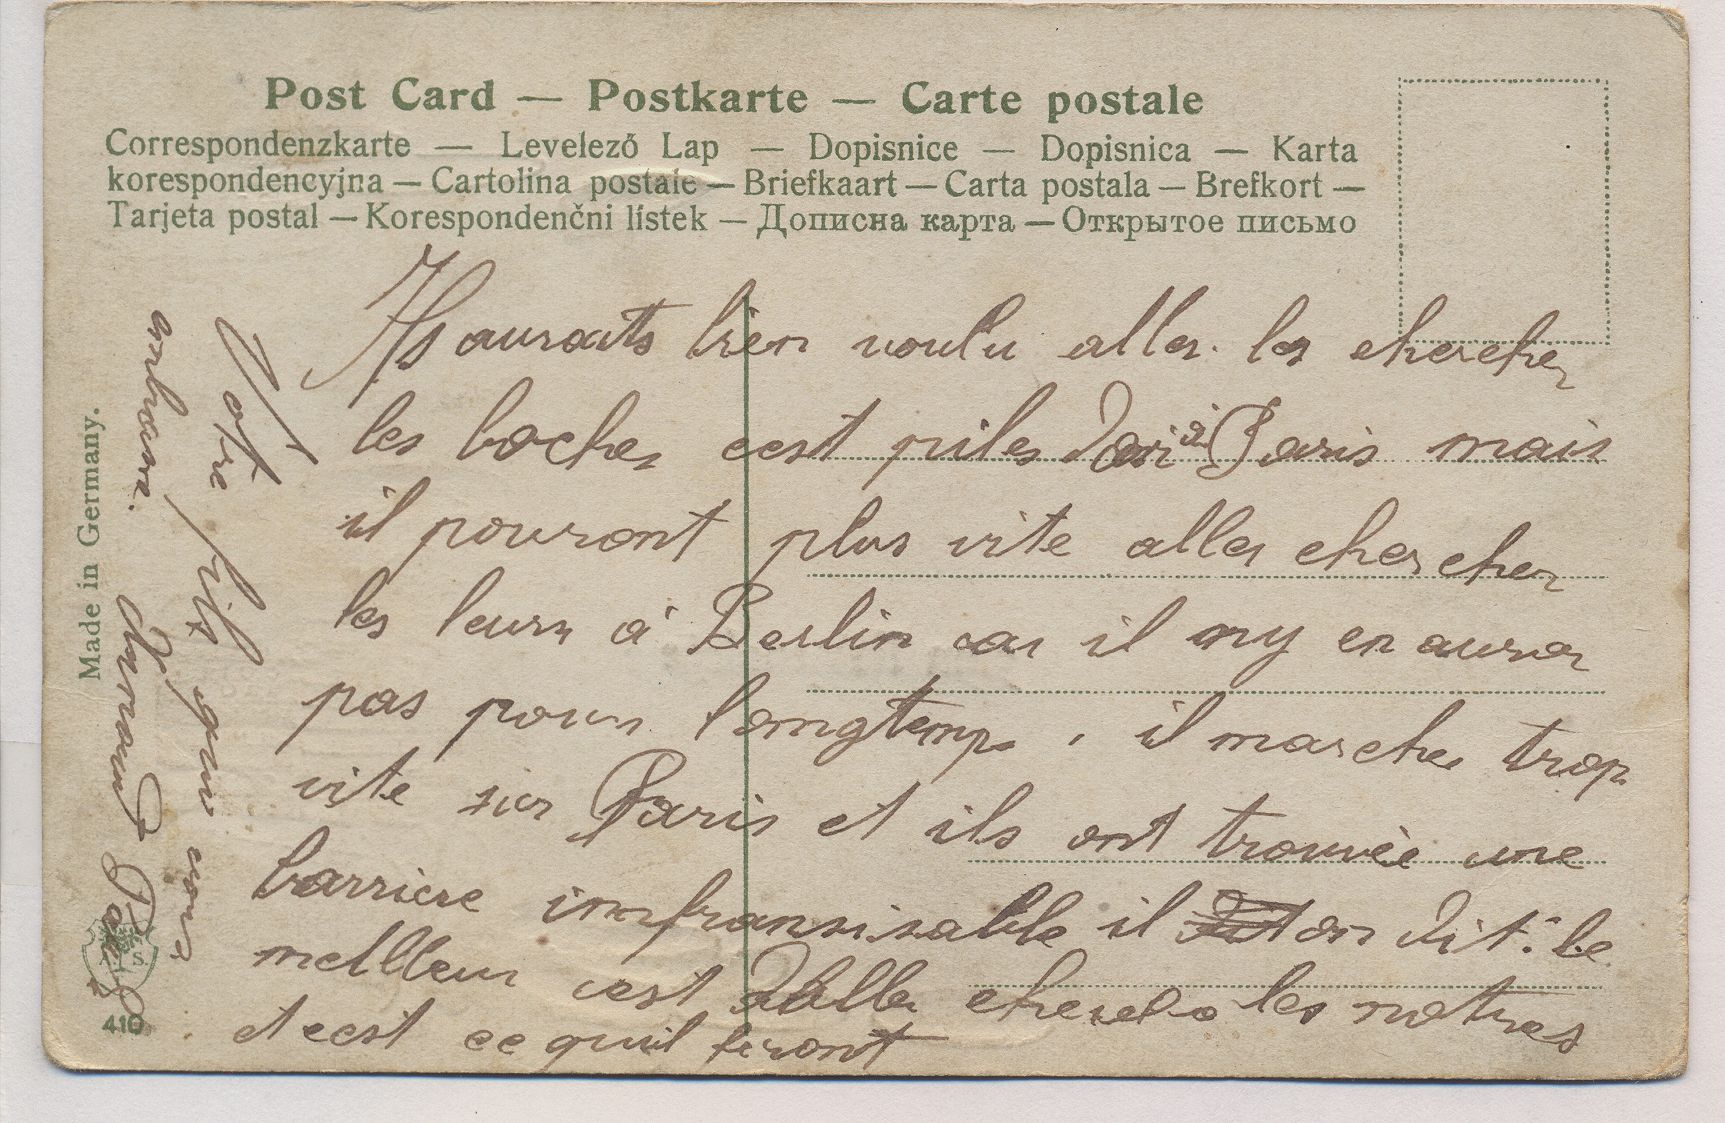 Post Card — Postkarte — Carte postale
Correspondenzkarte — Levelező Lap — Dopisnice — Dopisnica — Karta
korespondencyjna — Cartolina postale — Briefkaart — Carta postala — Brefkort —
Tarjeta postal — Korespondenčni lístek — Дописна карта — Открытое письмо
Ils aurait bien voulu aller les chercher
les boches cest piles à Paris mais
il pouront plus vite aller chercher
les leurs a Berlin car il ny en aura
pas pour longtemps , il marches trop
vite sur Paris et ils ont trouvée une
barriere infransisable il on dit: le
meilleur cest daller cherche les notres
et cest ce quil feront
Votre fils qui vous
embrasse.
Armand Paul
Made in Germany.
S.
410